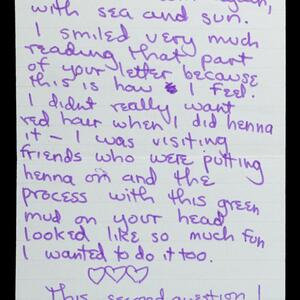 again,
with sea and sun.
I smiled very much
reading that part
of your letter because
this is how I feel.
I didnt really want
red hair when I did henna
it – I was visiting
friends who were putting
henna on and the
process with this green
mud on your head
looked like so much fun
I wanted to do it too.
♡♡♡
This second question!